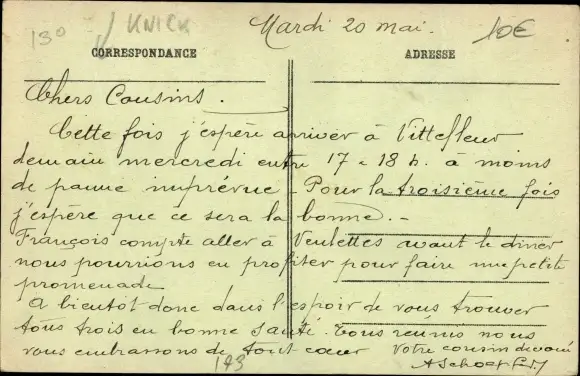 13° KNICK Mardi 20 mai. 10€
CORRESPONDANCE ADRESSE
Chers Cousins.
Cette fois j'espère arriver à Vittefleur
demain mercredi entre 17 à 18 h. à moins
de panne imprévue - Pour la troisième fois
j'espère que ce sera la bonne. -
François compte aller à Veulettes avant le diner
nous pourrions en profiter pour faire une petite
promenade
A bientôt donc dans l'espoir de vous trouver
tous trois en bonne santé. Tous réunis nous
vous embrassons de tout cœur votre cousin dévoué
193